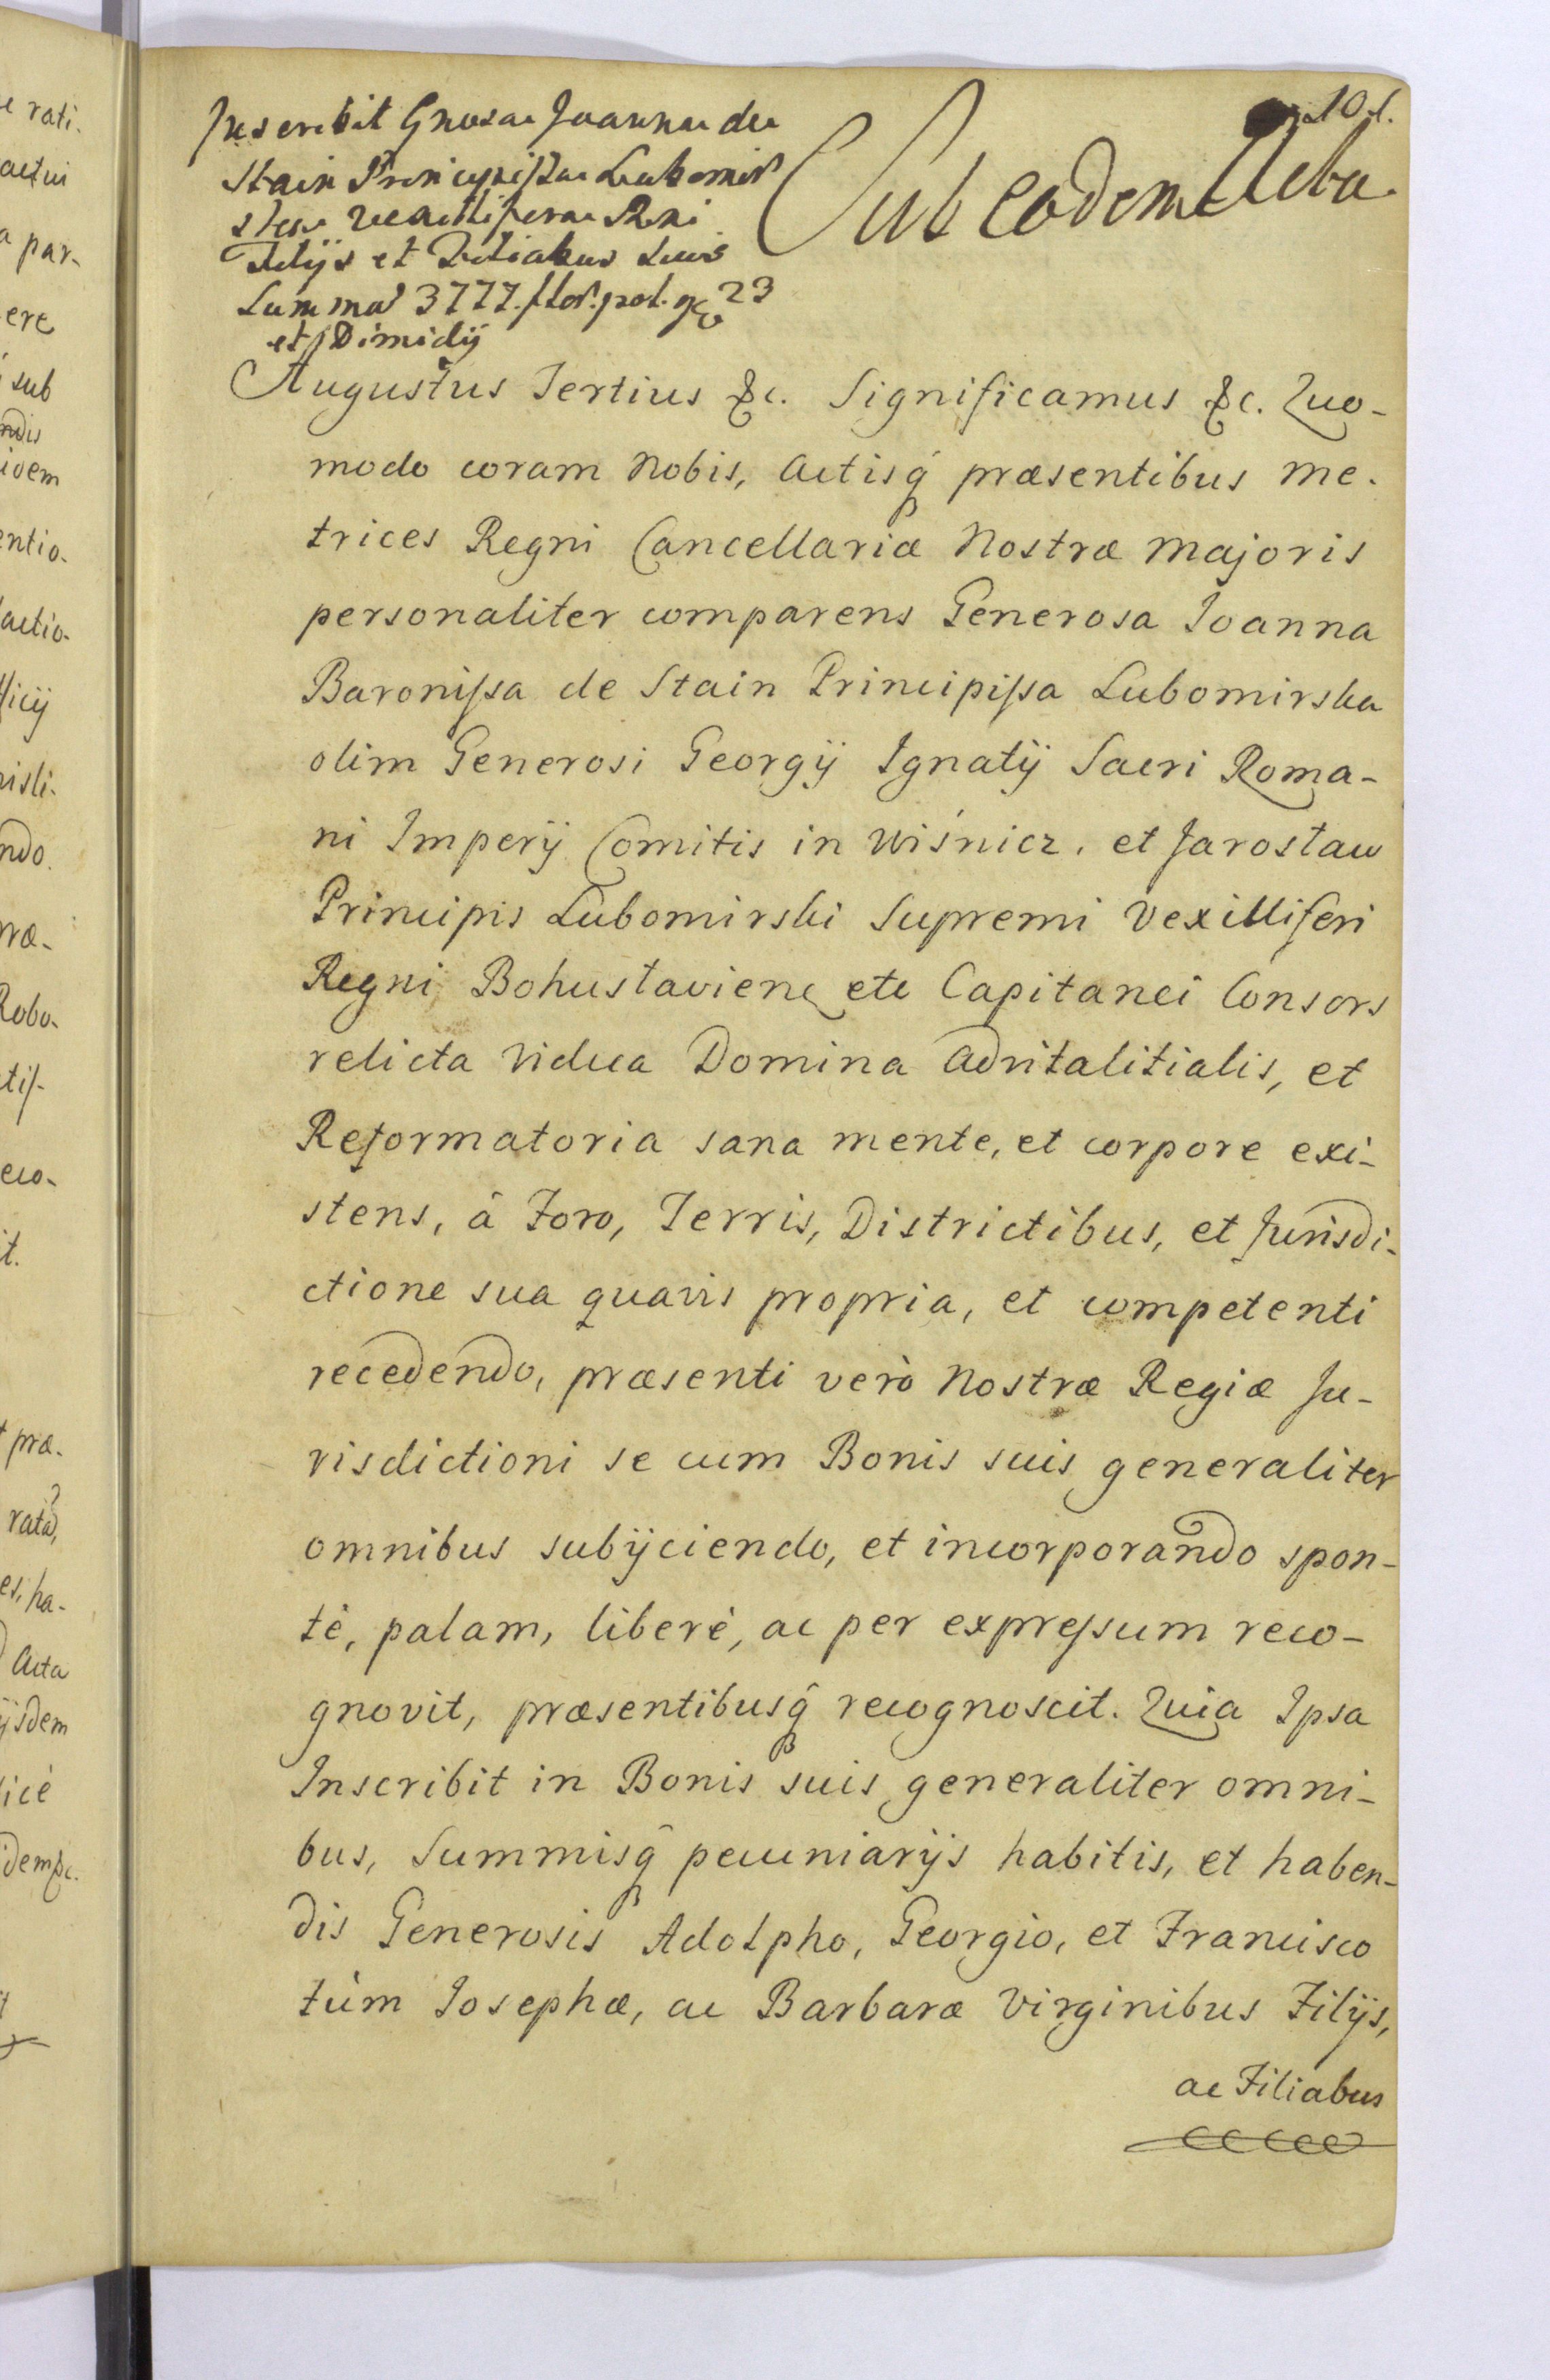 101.
Inscribit Gnosa Joanna de
Stain Principissa Lubomir
ska vexillifera Rni
Filijs et Filiabus suis
Summa 3777. flor. pol. gr 23
et Dimidij
Sub eodem Actu
Augustus Tertius &c. Significamus &c. Quo-
modo coram Nobis, Actisq́ præsentibus Me-
trices Regni Cancellariæ Nostræ Majoris
personaliter comparens Generosa Joanna
Baronissa de Stain Principissa Lubomirska
olim Generosi Georgij Ignatij Sacri Roma-
ni Imperij Comitis in Wiśnicz, et Jarosław
Principis Lubomirski Supremi Vexilliferi
Regni Bohuslavien etc Capitanei Consors
relicta Vidua Domina Advitalitialis, et
Reformatoria sana mente, et corpore exi-
stens, â Foro, Terris, Districtibus, et Jurisdi-
ctione sua quavis propria, et competenti
recedendo, præsenti verò Nostræ Regiæ Ju-
risdictioni se cum Bonis suis generaliter
omnibus subijciendo, et incorporando spon-
tè, palam, liberè, ac per expressum reco-
gnovit, præsentibusq̂ recognoscit. Quia Ipsa
Inscribit in Bonis suis generaliter omni-
bus, Summisq̂ pecuniarijs habitis, et haben-
dis Generosis Adolpho, Georgio, et Francisco
tùm Josephæ, ac Barbaræ Virginibus Filijs,
ac Filiabus